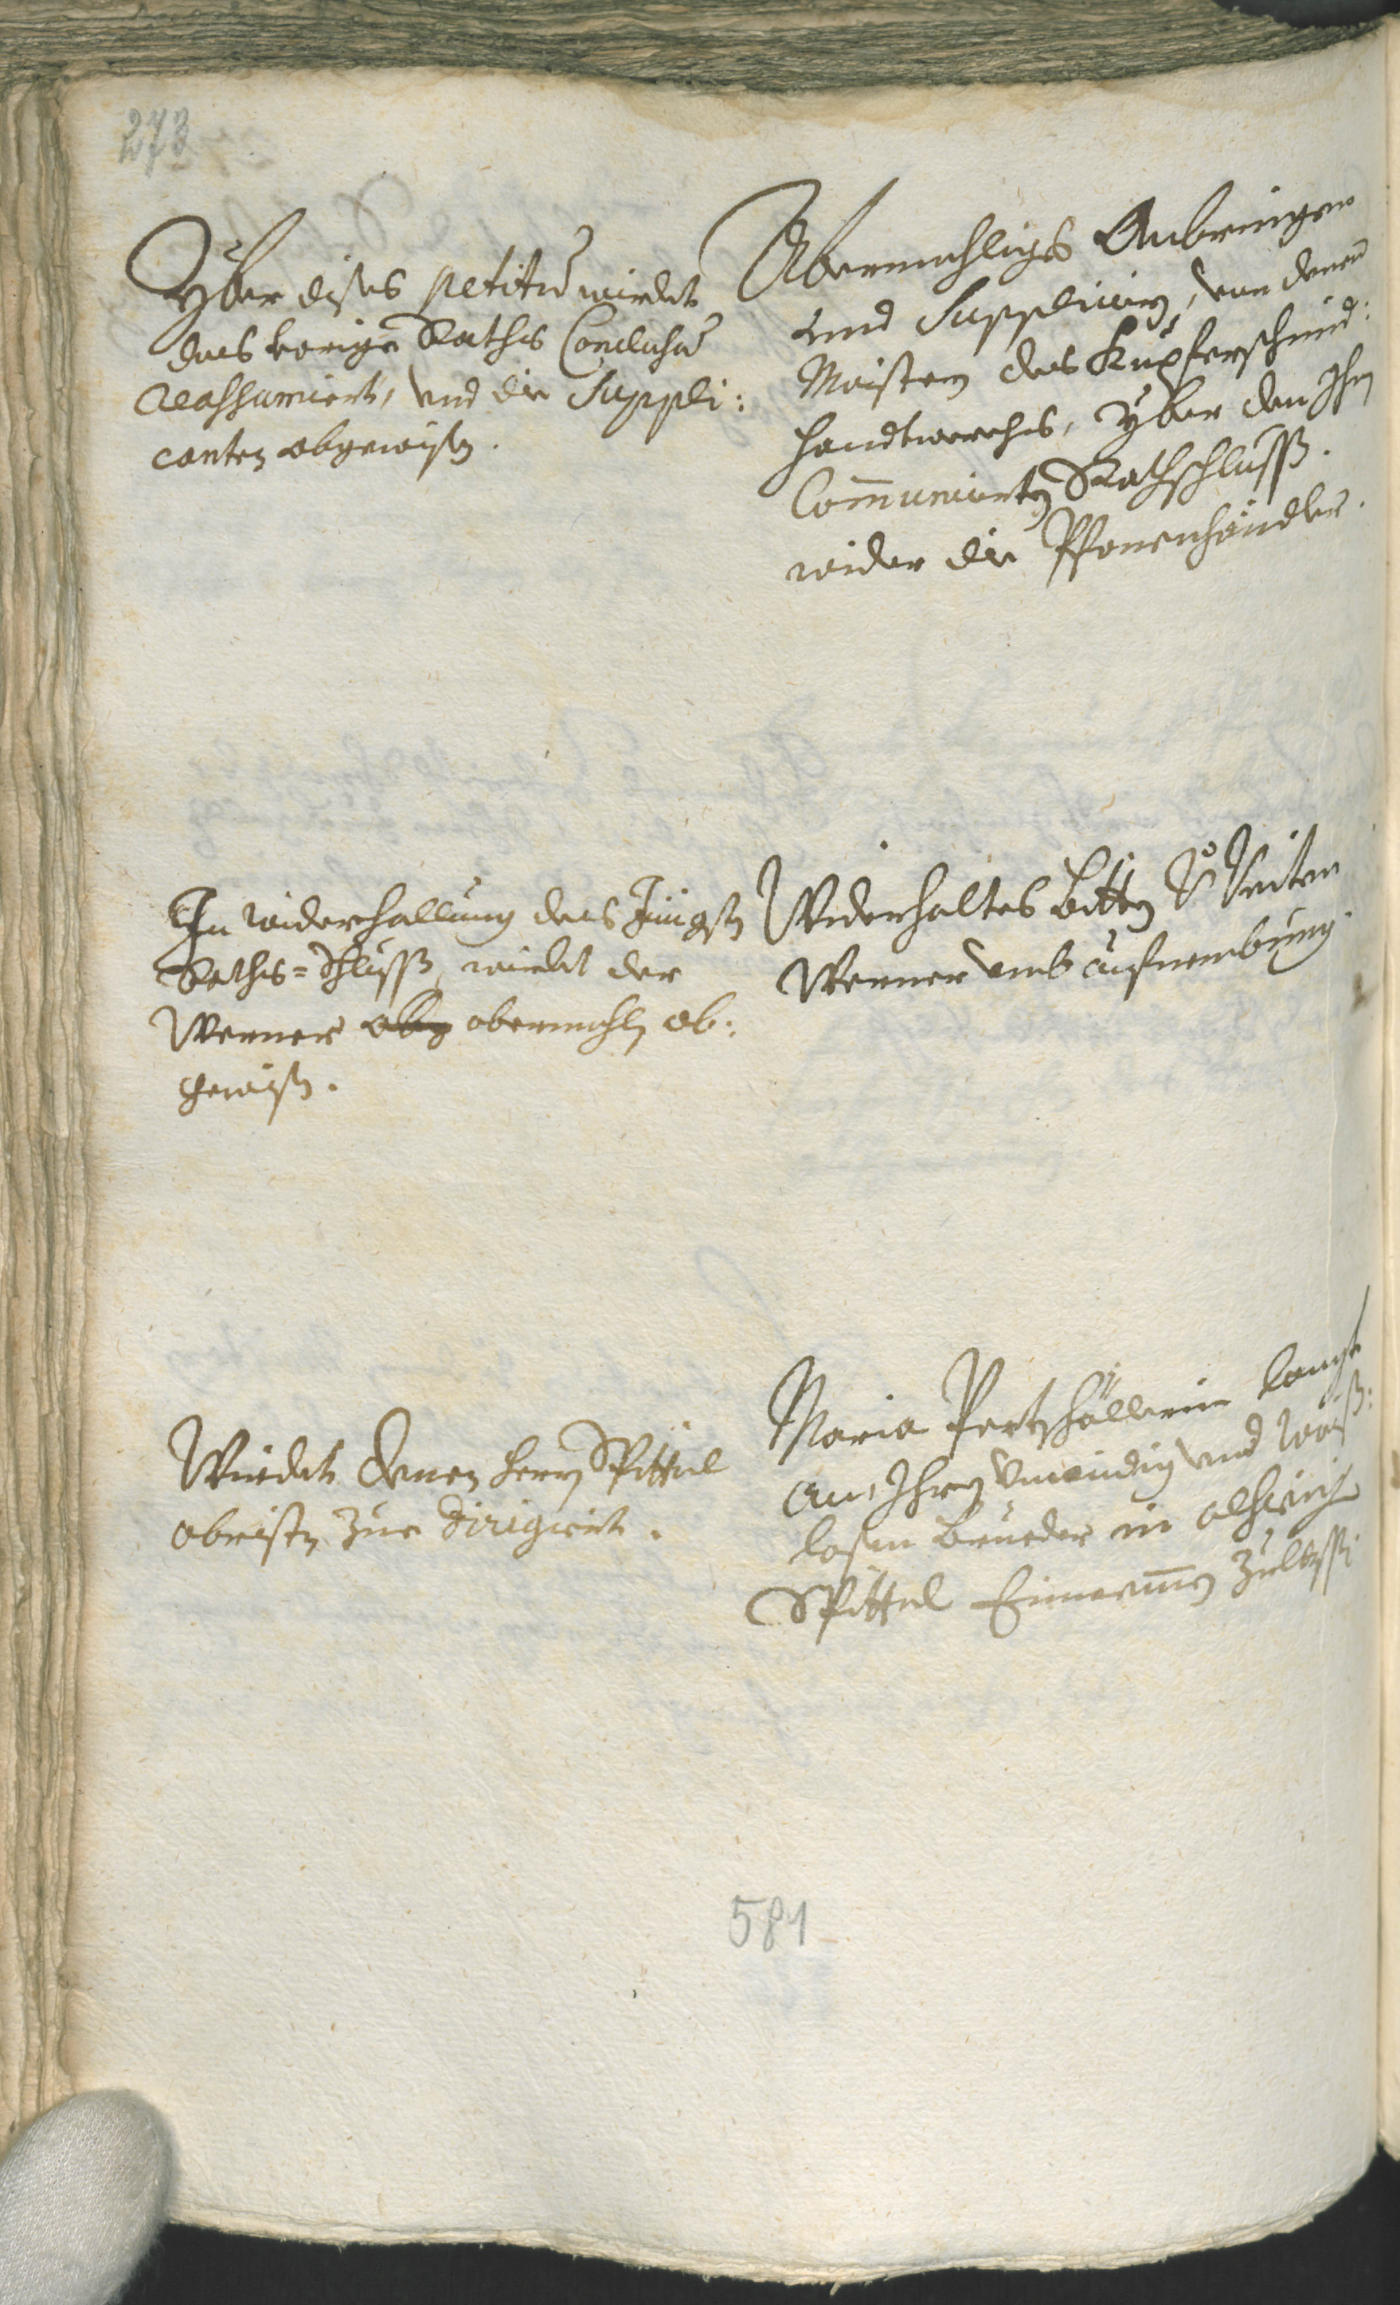 273
Yber dises petitum wirdet
das vorige Raths Conclusum
reassumiert, und die Suppli:
canten abgewisen.
Abermahliges Anbringen
und Suppliciren, von denen
Maistern des Kupferschmid:
handtwerchs, yber den Ihn
Communicierten Rathschluss.
wider die Pfanenhandler.
In widerhollung des Jüngsten
Raths=Schluss, wirdet der
Werner abermahlen ab:
gewisen.
Widerholtes bitten Veiten
Werner umb aufnembung
Wirdet denen herrn Spittal
obristen zue dirigiert.
Maria langt
an, Ihren und
losen brueder in alhieig
Spittal Einemmen zulassen
581